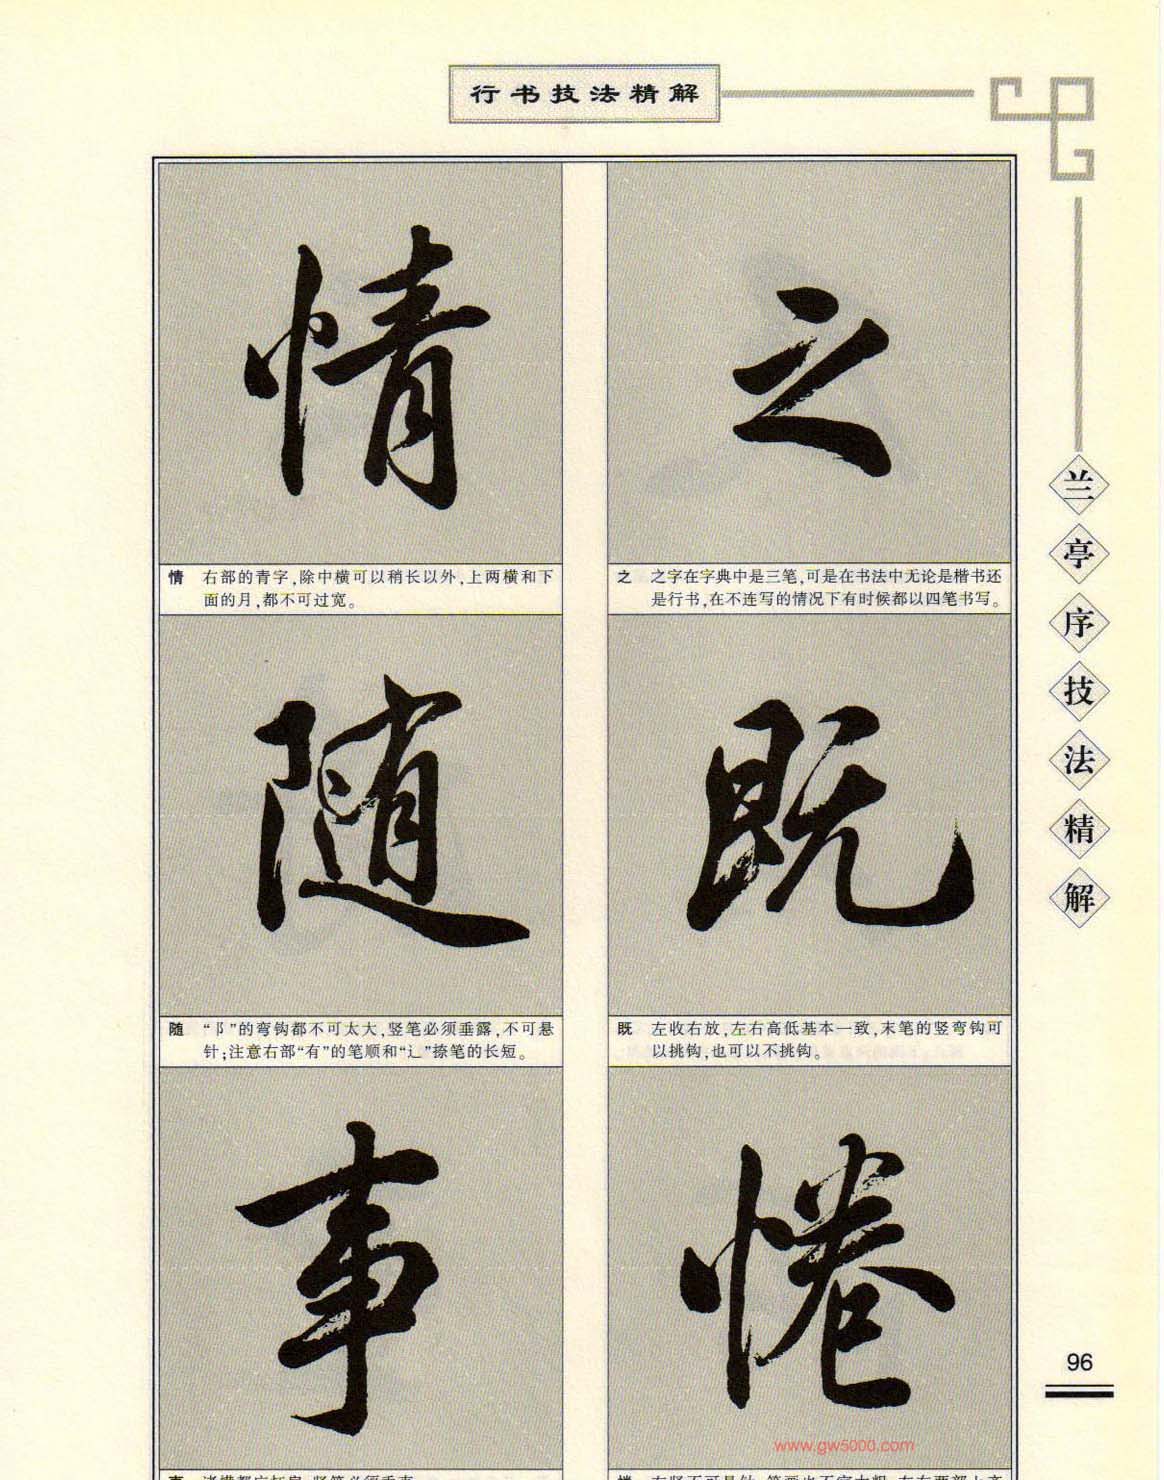 行书技法精解
之
之 之字在字典中是三笔,可是在书法中无论是楷书还
是行书,在不连写的情况下有时候都以四笔书写。
既
既 左收右放,左右高低基本一致,末笔的竖弯钩可
以挑钩,也可以不挑钩。
惓
情
情 右部的青字,除中横可以稍长以外,上两横和下
面的月,都不可过宽。
随
随 “阝”的弯钩都不可太大,竖笔必须垂露,不可悬
针;注意右部“有”的笔顺和“辶”捺笔的长短。
事
兰亭序技法精解
96
www.gw5000.com